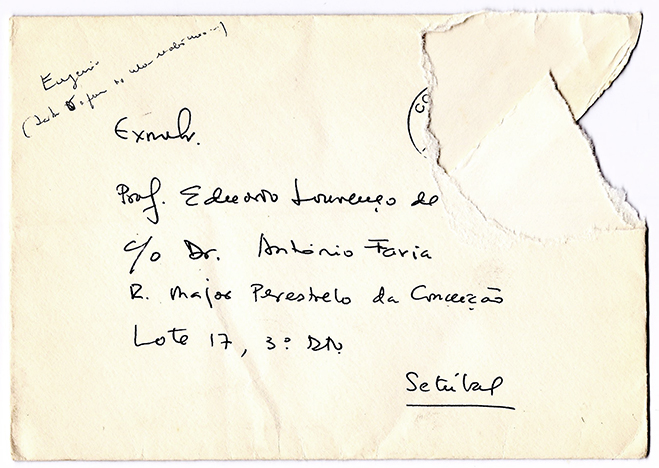 Eugénio
Exmo Sr.
Prof. Eduardo Lourenço de
c/o Dr. António Faria
R. Major Perestrelo da Conceição
Lote 17, 3º Dto.
Setúbal